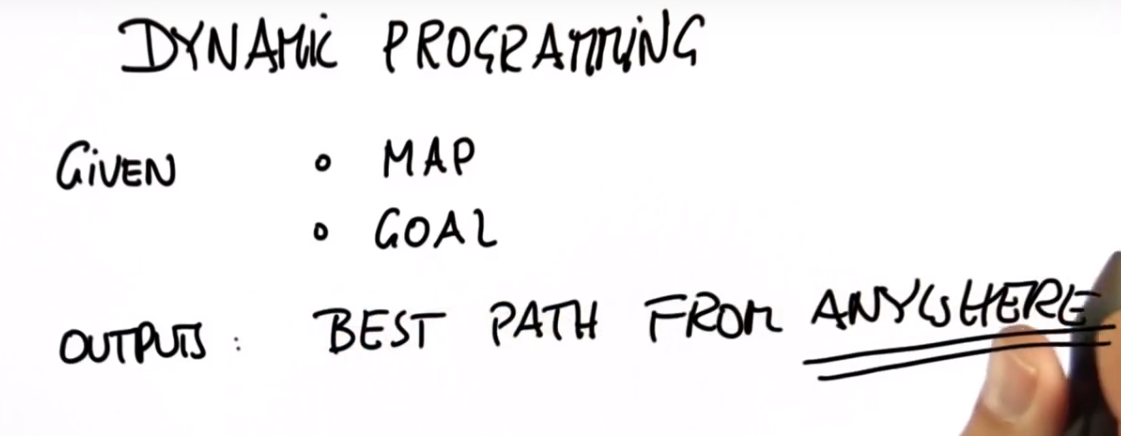 DYNAMIC PROGRAMMING
GIVEN ◦ MAP
◦ GOAL
OUTPUTS: BEST PATH FROM ANYWHERE